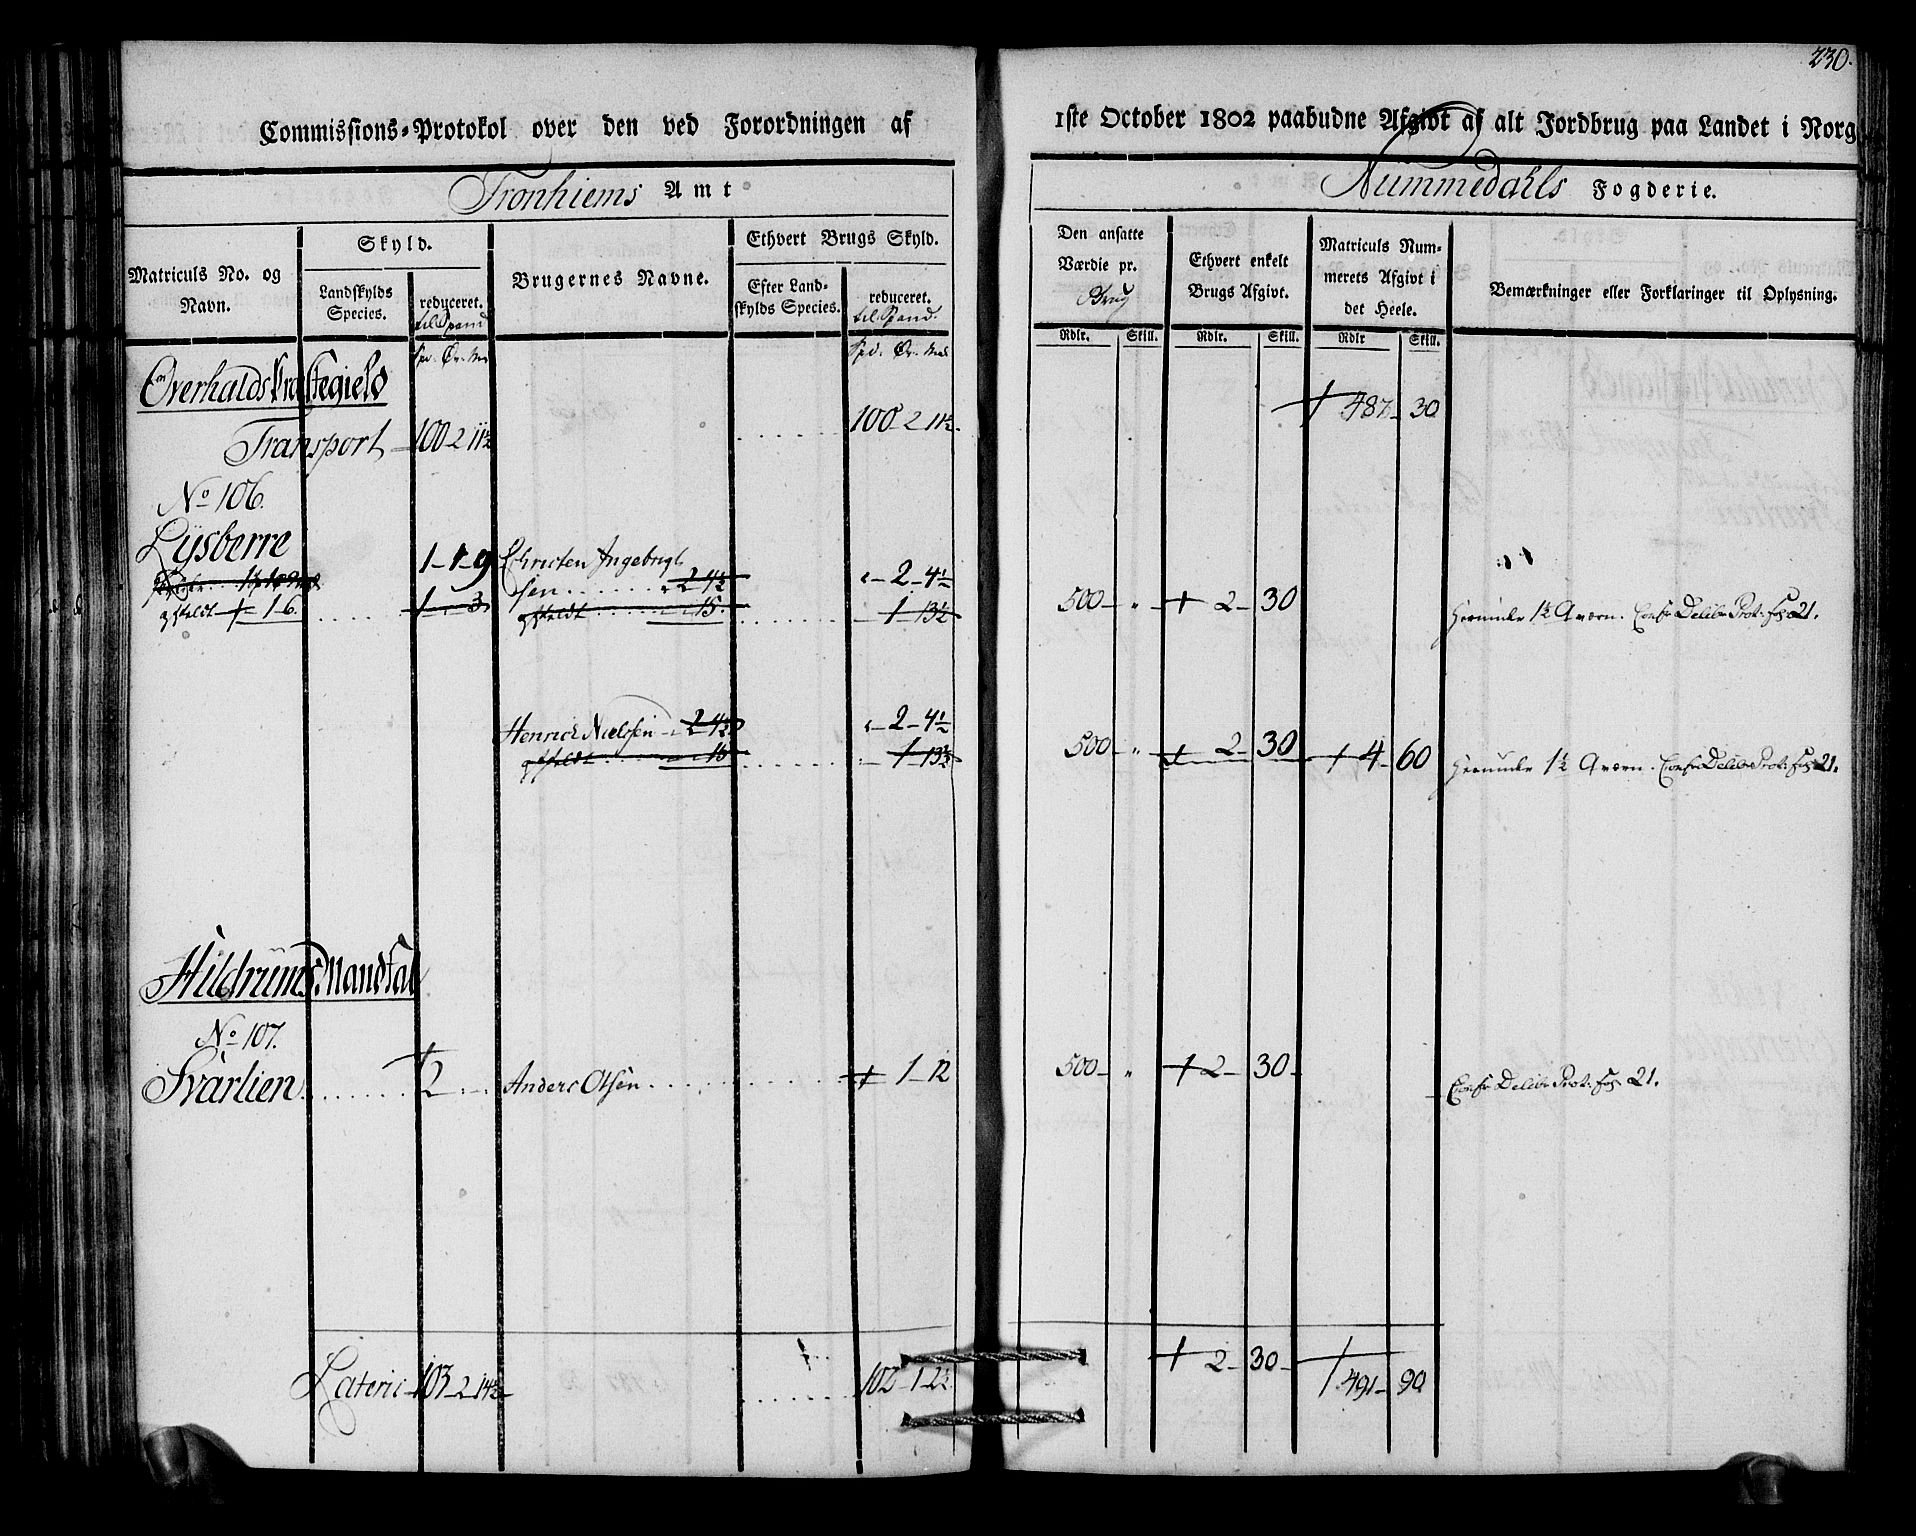 230.
Commissions-Protokol over den ved Forordningen af
1ste October 1802 paabudne Afgivt af alt Jordbrug paa Landet i Norg
Tronhiems Amt
Nummedahls Fogderie.
Matriculs No. og Navn.
Skyld.
Landskylds Species.
reduceret. til Spand
Brugernes Navne.
Ethvert Brugs Skyld.
Efter Landskylds Species.
reduceret. til Spand.
Den ansatte Værdie pr. Brug
Ethvert enkelt Brugs Afgivt.
Matriculs Nummerets Afgivt i det Heele.
Bemærkninger eller Forklaringer til Oplysning.
Rdlr. Skill. Rdlr. Skill. Rdlr Skill.
Spd. Ør. Mrk
Overhalds Præstegield
Transport 100-2 11½ 100-2 11½. 487-30
No 106.
Lysberre 1-1-9 Christen Ingebrigt
sen 2 4½ "-2-4½
1 6. 1 3 15. 1 13½ 500-" 2-30 1½ Qværn. Confr Delibr Prot: fol: 21.
Henrich Nielssen 2 4½ "-2-4½
15 1 13½ 500-" 2-30 4-60 1½ Qværn. Confr Delibr Prot: fol: 21.
Hildrums Mandtal
No 107.
Svarlien 2 Anders Olsen 1-12 500-" 2-30 Confr Delibr Prot: fol: 21.
Lateris 103-2 14½ 102-1-2½ 2-30 491-90